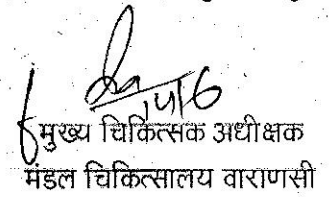 मुख्य चिकित्सक अधीक्षक
मंडल चिकित्सालय वाराणसी